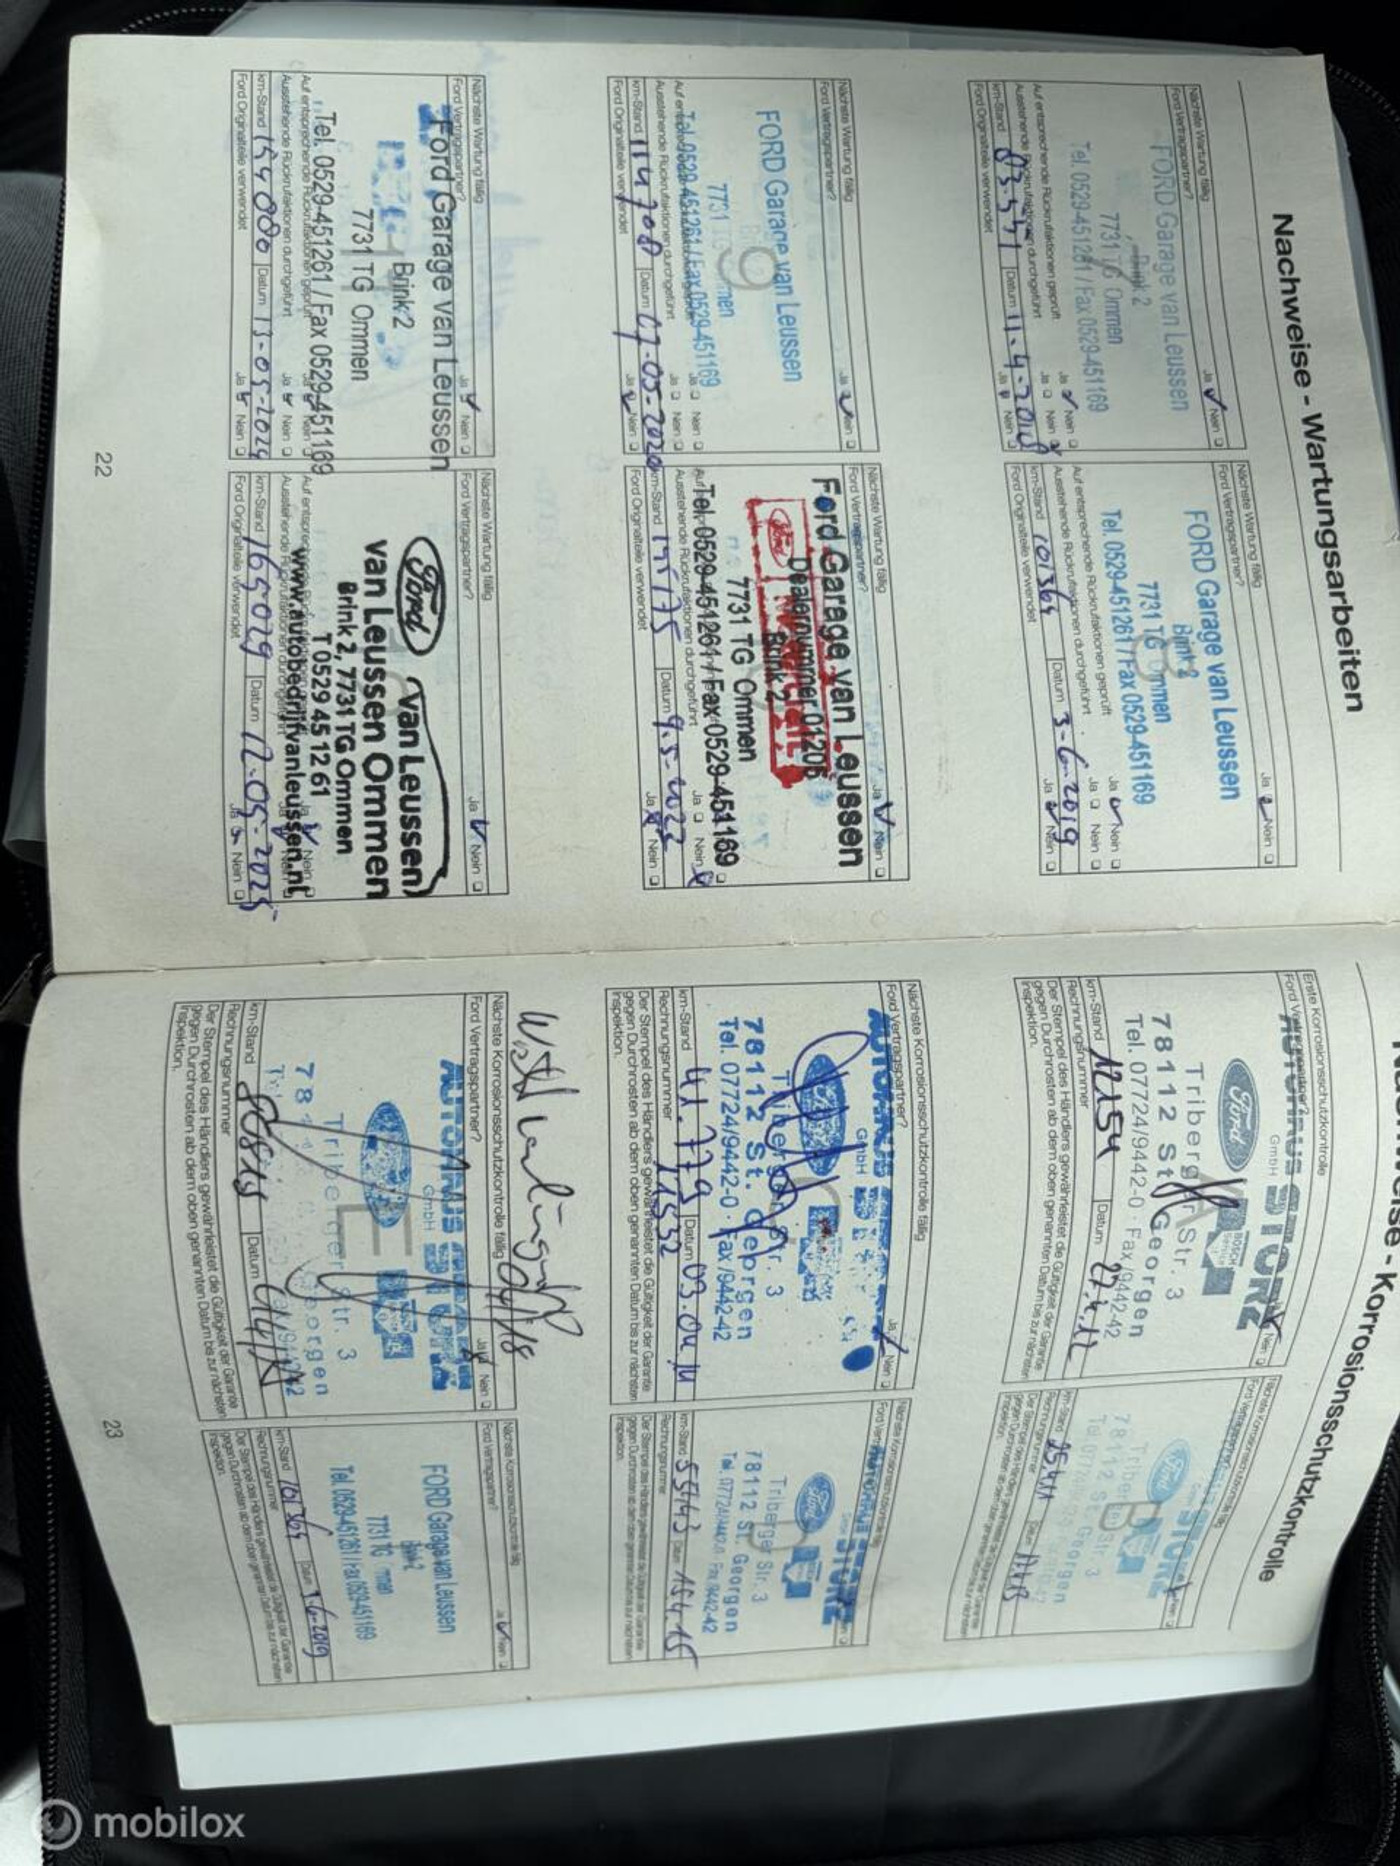 Nachweise - Wartungsarbeiten
Nächste Wartung fällig
Ford Vertragspartner? Ja Nein
FORD Garage van Leussen
Brink 2
7731 TG Ommen
Tel. 0529-451261 / Fax 0529-451169
Auf entsprechende Rückrufaktionen geprüft Ja Nein
Ausstehende Rückrufaktionen durchgeführt Ja Nein
km-Stand Datum 11-4-2018
Ford Originalteile verwendet Ja Nein
Nächste Wartung fällig
Ford Vertragspartner? Ja Nein
8
FORD Garage van Leussen
Brink 2
7731 TG Ommen
Tel. 0529-451261 / Fax 0529-451169
Auf entsprechende Rückrufaktionen geprüft Ja Nein
Ausstehende Rückrufaktionen durchgeführt Ja Nein
km-Stand 101364 Datum 3-6-2019
Ford Originalteile verwendet Ja Nein
Nächste Wartung fällig
Ford Vertragspartner? Ja Nein
9
FORD Garage van Leussen
7731 TG Ommen
Tel. 0529-451261 / Fax 0529-451169
Ausstehende Rückrufaktionen durchgeführt Ja Nein
km-Stand 114708 Datum 07-05-2020
Ford Originalteile verwendet Ja Nein
Nächste Wartung fällig
Ford Vertragspartner? Ja Nein
Ford Garage van Leussen
Ford
Dealernummer 01206
Brink 2
7731 TG Ommen
Tel. 0529-451261 / Fax 0529-451169
Ausstehende Rückrufaktionen durchgeführt Ja Nein
km-Stand Datum 9-5-2022
Ford Originalteile verwendet Ja Nein
Nächste Wartung fällig
Ford Vertragspartner? Ja Nein
Ford Garage van Leussen
Brink 2
7731 TG Ommen
Tel. 0529-451261 / Fax 0529-451169
Auf entsprechende Rückrufaktionen geprüft Ja Nein
Ausstehende Rückrufaktionen durchgeführt Ja Nein
km-Stand 154080 Datum 13-05-2024
Ford Originalteile verwendet Ja Nein
Nächste Wartung fällig
Ford Vertragspartner? Ja Nein
Ford van Leussen
van Leussen Ommen
Brink 2, 7731 TG Ommen
T 0529 45 12 61
www.autobedrijfvanleussen.nl
km-Stand 165029 Datum 12-05-2025
Ford Originalteile verwendet Ja Nein
22
- Korrosionsschutzkontrolle
Erste Korrosionsschutzkontrolle
Ford Vertragspartner? Ja Nein
AUTOHAUS STORZ
GmbH
Ford BOSCH Service
Triberger Str. 3
78112 St. Georgen
Tel. 07724/9442-0 · Fax /9442-42
km-Stand 12154 Datum 27.4.12
Rechnungsnummer
Der Stempel des Händlers gewährleistet die Gültigkeit der Garantie
gegen Durchrosten ab dem oben genannten Datum bis zur nächsten
Inspektion.
Nächste Korrosionsschutzkontrolle fällig
Ford Vertragspartner? Ja Nein
B
STORZ
Ford
Triberger Str. 3
78112 St. Georgen
km-Stand Datum
Rechnungsnummer
Der Stempel des Händlers gewährleistet die Gültigkeit der Garantie
gegen Durchrosten ab dem oben genannten Datum bis zur nächsten
Inspektion.
Nächste Korrosionsschutzkontrolle fällig
Ford Vertragspartner? Ja Nein
AUTOHAUS
GmbH
Triberger Str. 3
78112 St. Georgen
Tel. 07724/9442-0 · Fax /9442-42
km-Stand 41.779 Datum 03.04.14
Rechnungsnummer
Der Stempel des Händlers gewährleistet die Gültigkeit der Garantie
gegen Durchrosten ab dem oben genannten Datum bis zur nächsten
Inspektion.
Nächste Korrosionsschutzkontrolle fällig
Ford Vertragspartner? Ja Nein
D
AUTOHAUS STORZ
Ford
Triberger Str. 3
78112 St. Georgen
Tel. 07724/9442-0 · Fax /9442-42
km-Stand 55743 Datum 15.4.15
Rechnungsnummer
Der Stempel des Händlers gewährleistet die Gültigkeit der Garantie
gegen Durchrosten ab dem oben genannten Datum bis zur nächsten
Inspektion.
Nächste Korrosionsschutzkontrolle fällig
Ford Vertragspartner? Ja Nein
E
AUTOHAUS
GmbH
Triberger Str. 3
km-Stand Datum
Rechnungsnummer
Der Stempel des Händlers gewährleistet die Gültigkeit der Garantie
gegen Durchrosten ab dem oben genannten Datum bis zur nächsten
Inspektion.
Nächste Korrosionsschutzkontrolle fällig
Ford Vertragspartner? Ja Nein
FORD Garage van Leussen
Brink 2
7731 TG Ommen
Tel. 0529-451261 / Fax 0529-451169
km-Stand 101364 Datum 3-6-2019
Rechnungsnummer
Der Stempel des Händlers gewährleistet die Gültigkeit der Garantie
gegen Durchrosten ab dem oben genannten Datum bis zur nächsten
Inspektion.
23
mobilox